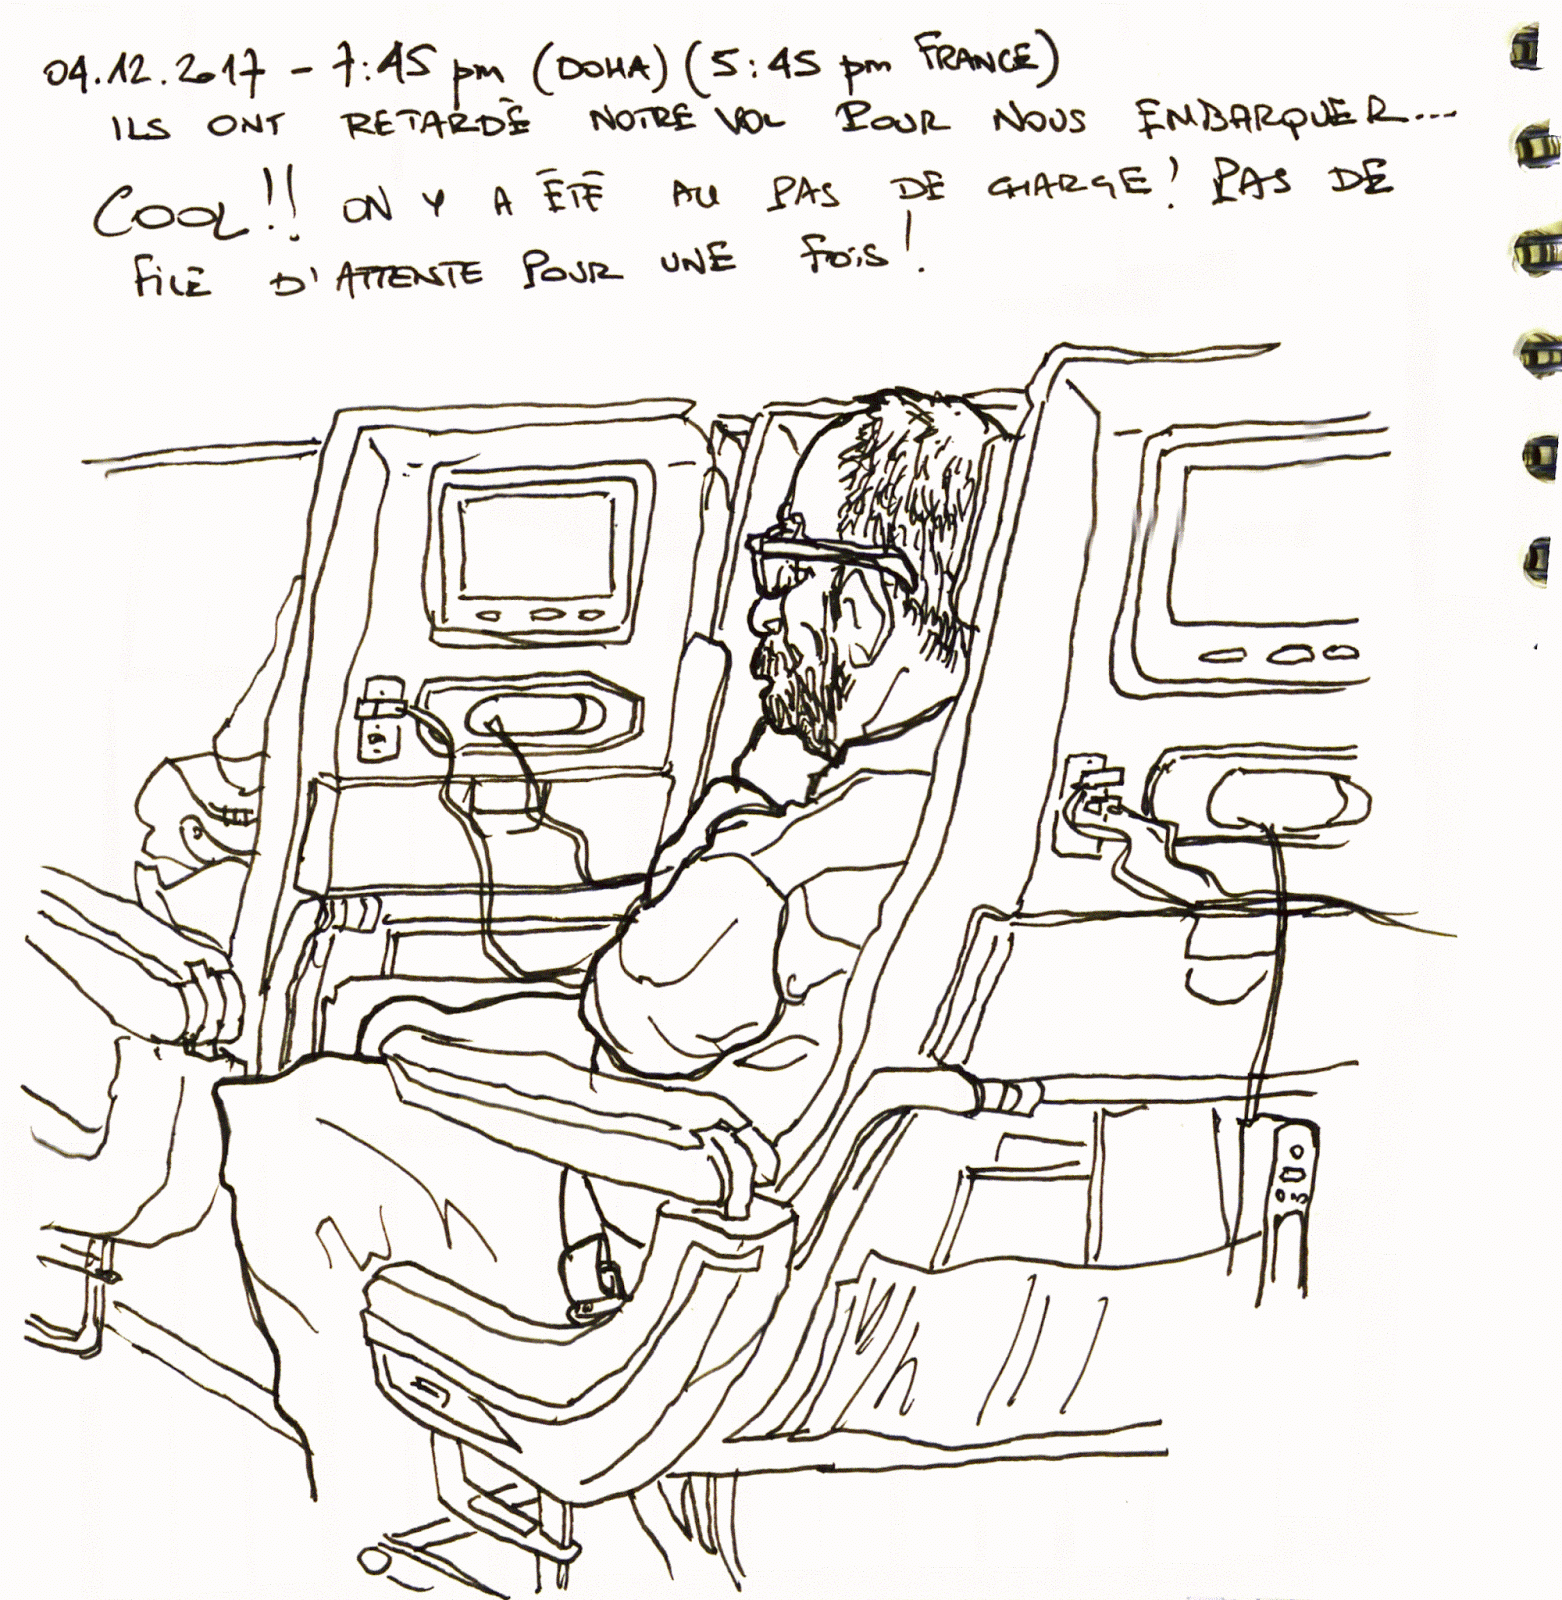 04.12.2017 - 7:45 pm (DOHA) (5:45 pm FRANCE)
ILS ONT RETARDÉ NOTRE VOL POUR NOUS EMBARQUER...
COOL!! ON Y A ÉTÉ AU PAS DE CHARGE! PAS DE
FILE D'ATTENTE POUR UNE FOIS!